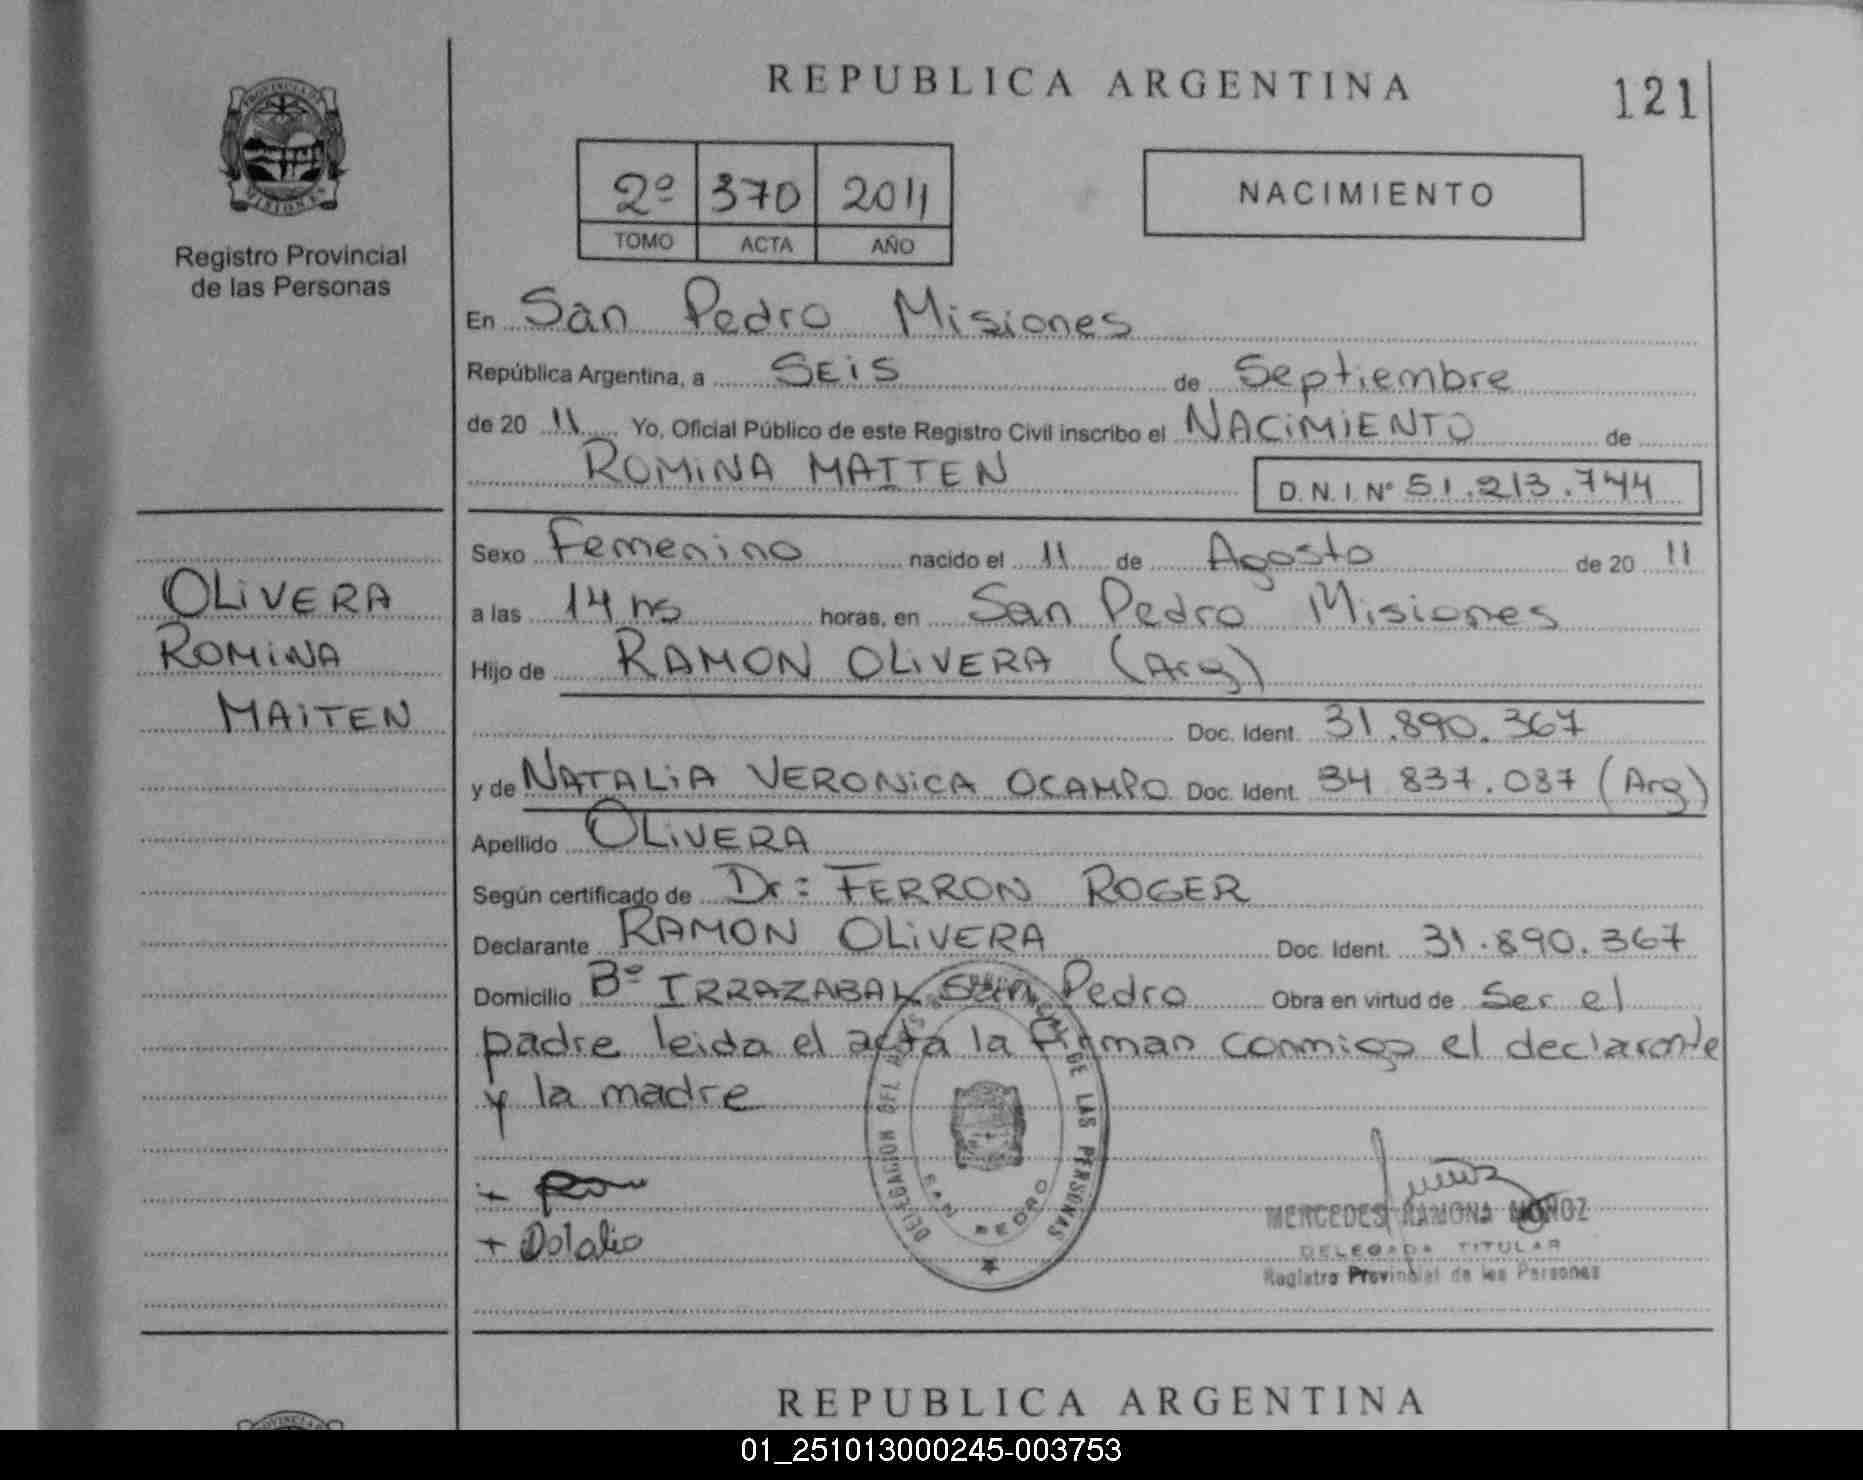 REPUBLICA ARGENTINA
121
PROVINCIA DE
MISIONES
Registro Provincial
de las Personas
2º 370 2011
TOMO ACTA AÑO
NACIMIENTO
En San Pedro Misiones
República Argentina, a SEiS de Septiembre
de 20 11 Yo, Oficial Público de este Registro Civil inscribo el NACiMiENTO de
ROMiNA MAITEN D.N.I. Nº 51.213.744
Sexo Femenino nacido el 11 de Agosto de 20 11
a las 14 hs horas, en San Pedro Misiones
Hijo de RAMON OLiVERA (Arg)
Doc. Ident. 31.890.367
y de NATALiA VERONiCA OCAMPO Doc. Ident. 34 837.087 (Arg)
Apellido OLiVERA
Según certificado de Dr: FERRON ROGER
Declarante RAMON OLiVERA Doc. Ident. 31.890.367
Domicilio Bº IRRAZABAL San Pedro Obra en virtud de Ser el
padre leida el acta la firman conmigo el declarante
y la madre
OLiVERA
ROMiNA
MAiTEN
DELEGACION DEL DE LAS PERSONAS
SAN PEDRO
MERCEDES RAMONA MUÑOZ
DELEGADA TITULAR
Registro Provincial de las Personas
REPUBLICA ARGENTINA
01_251013000245-003753